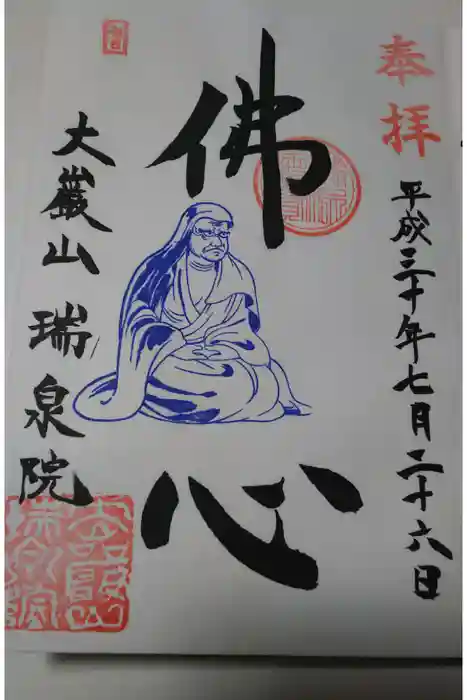 奉拝
平成三十年七月二十六日
佛心
大巖山 瑞泉院